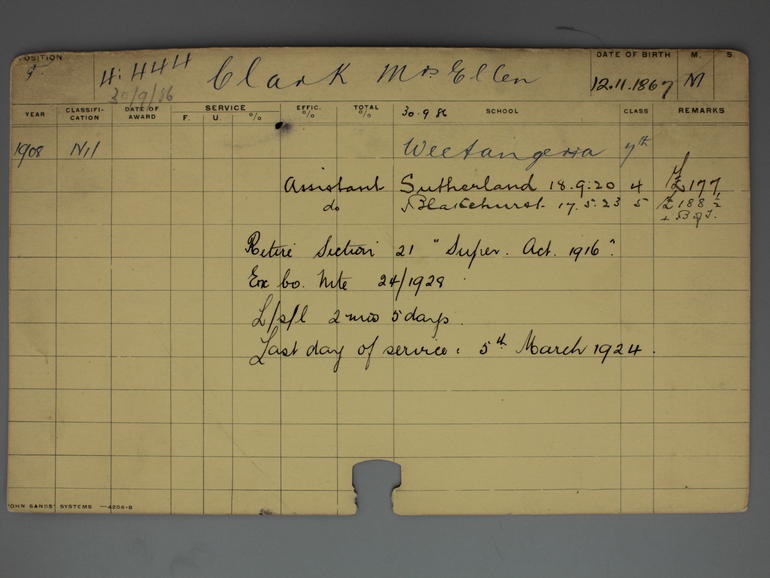 POSITION
DATE OF BIRTH M. S.
4: 444 Clark Mrs Ellen 12.11.1867 M
30/9/86
YEAR CLASSIFICATION DATE OF AWARD SERVICE F. U. % EFFIC. % TOTAL % 30.9.86 SCHOOL CLASS REMARKS
1908 Nil Weetangerra 7th
Assistant Sutherland 18.9.20 4 £177
do Blakehurst 17.5.23 5 £188½
+ B of T.
Retire Section 21 "Super. Act. 1916".
Ex Co. Mte 24/1929
L/s/l 2 mos 5 days.
Last day of service: 5th March 1924.
JOHN SANDS' SYSTEMS —4206-B